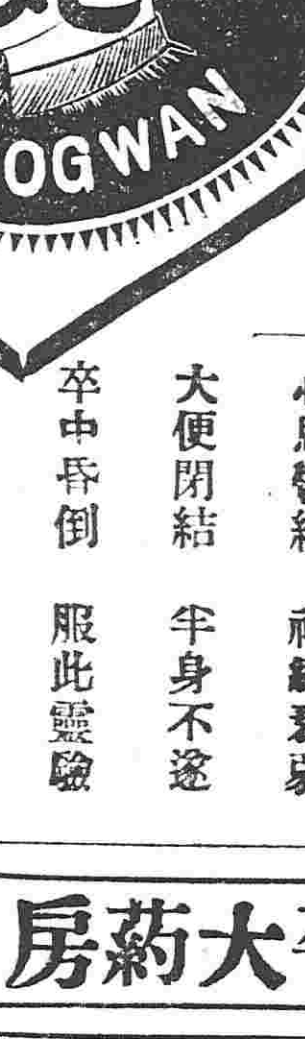 OGWAN
大便閉結 半身不遂
卒中昏倒 服此靈驗
大葯房